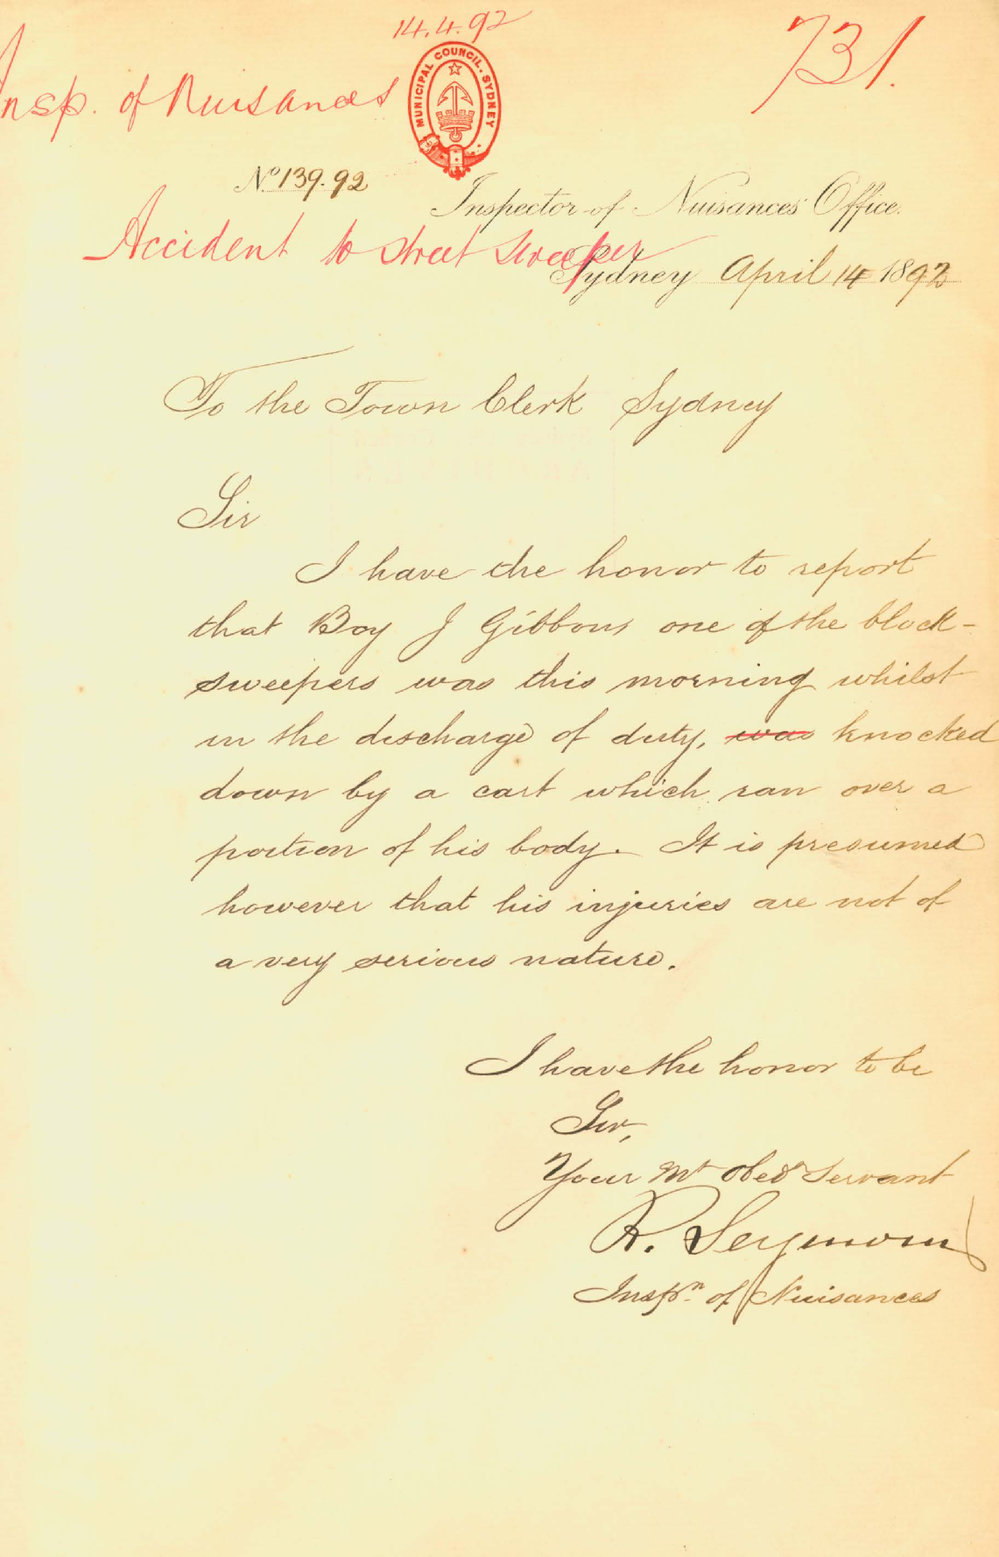 14.4.92
731.
Insp. of Nuisances
MUNICIPAL COUNCIL. SYDNEY
No 139.92
Inspector of Nuisances' Office.
Accident to street sweeper
Sydney April 14 1892
To the Town Clerk Sydney
Sir
I have the honor to report
that Boy J Gibbons one of the block-
sweepers was this morning whilst
in the discharge of duty, was knocked
down by a cart which ran over a
portion of his body. It is presumed
however that his injuries are not of
a very serious nature.
I have the honor to be
Sir,
Your Mt Obedt Servant
R. Seymour
Inspr. of Nuisances